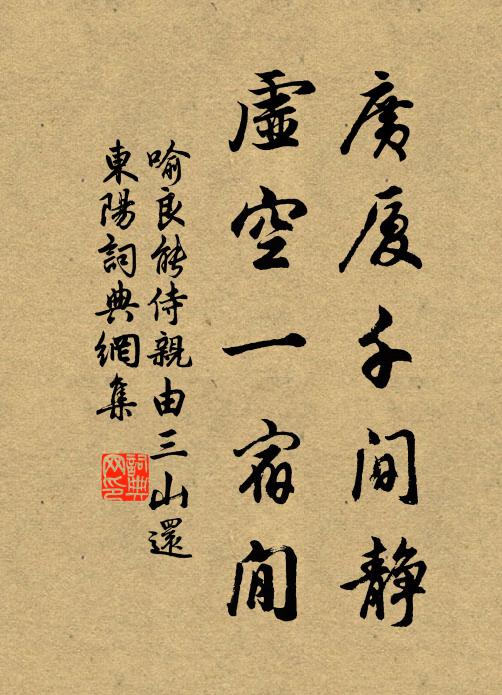 廣厦千间静
虛空一宿閒
喻良能侍親由三山還
東陽詞典網集
詞典
网印